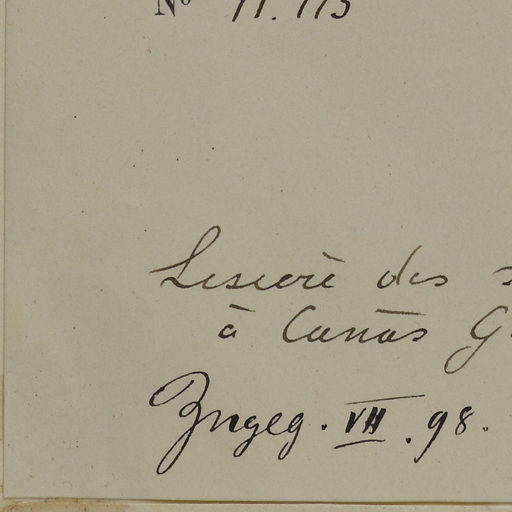 Nº 11.113
Lisière des
à Cañas G
VII . 98.